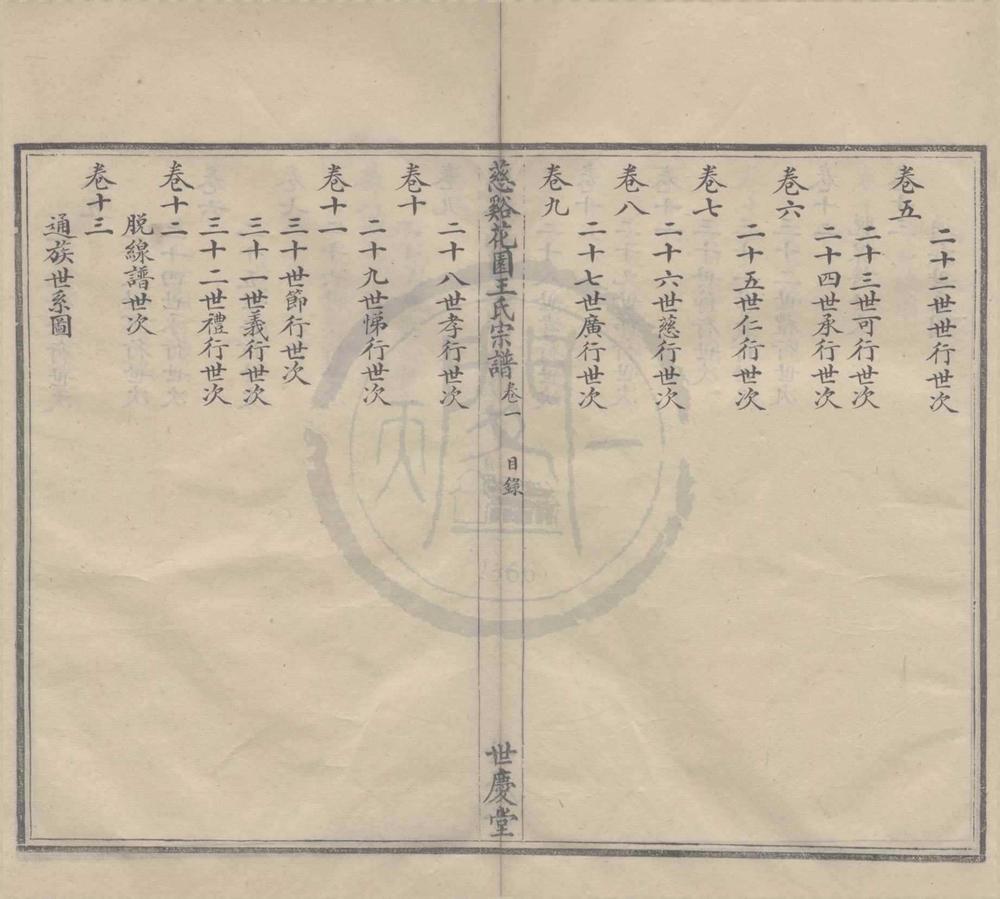 二十二世世行世次
卷五
二十三世可行世次
二十四世承行世次
卷六
二十五世仁行世次
卷七
二十六世慈行世次
卷八
二十七世廣行世次
卷九
慈谿花園王氏宗譜 卷一 目錄 世慶堂
二十八世孝行世次
卷十
二十九世悌行世次
卷十一
三十世節行世次
三十一世義行世次
三十二世禮行世次
卷十二
脫線譜世次
卷十三
通族世系圖